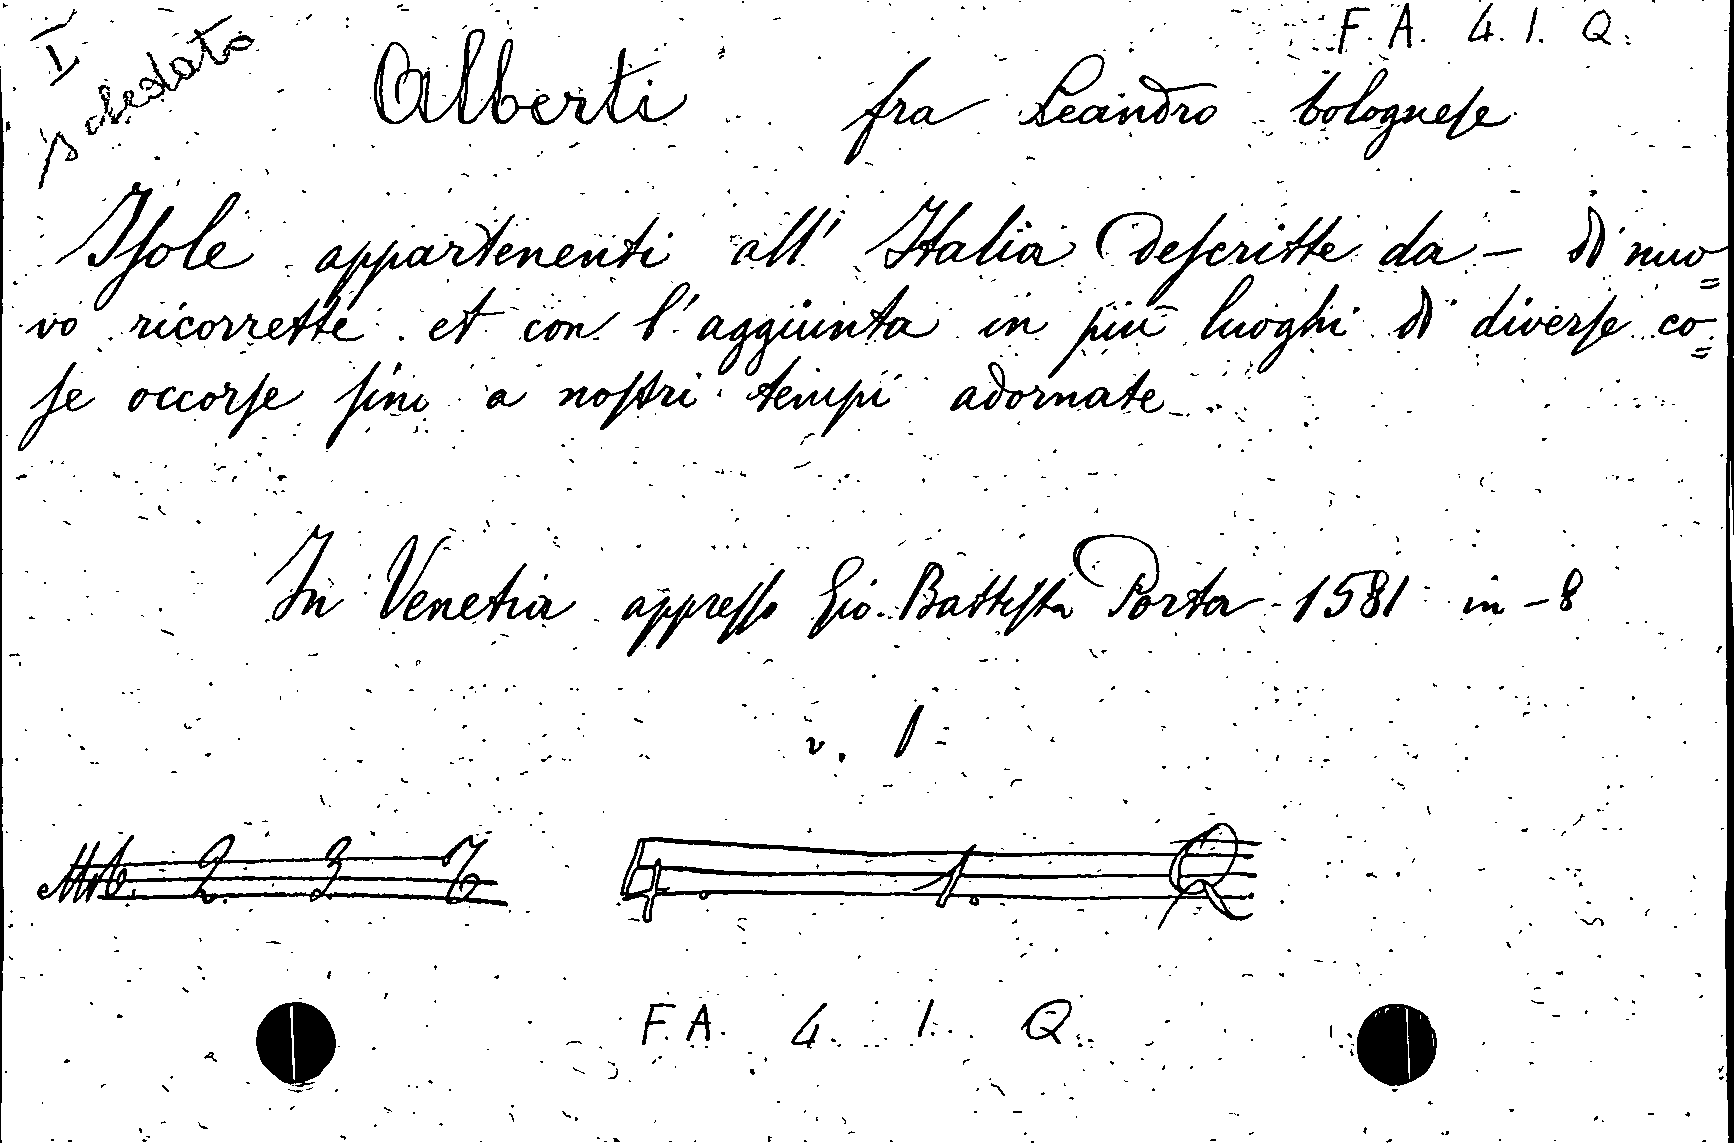 F. A. 4. 1. Q.
I
schedato
Alberti fra Leandro bologneſe
Iſole appartenenti all' Italia deſcritte da - di nuo=
vo ricorrette et con l'aggiunta in più luoghi di diverſe co=
ſe occorſe fini a noſtri tempi adornate
In Venetia appreſſo Gio. Battiſta Porta 1581 in-8
v. 1
2 3
4. 1. Q
F. A. 4. 1. Q.